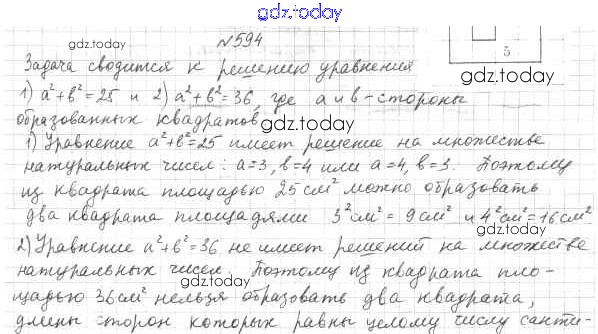 gdz.today
№594
gdz.today
5
Задача сводится к решению уравнения
gdz.today
1) a²+b²=25 и 2) a²+b²=36, где a и b - стороны
образованных квадратов.
gdz.today
1) Уравнение a²+b²=25 имеет решение на множестве
натуральных чисел: a=3, b=4 или a=4, b=3. Поэтому
gdz.today
gdz.today
из квадрата площадью 25 см² можно образовать
два квадрата площадями 3²см²= 9см² и 4²см²=16см²
gdz.today
2) Уравнение a²+b²=36 не имеет решений на множестве
натуральных чисел. Поэтому из квадрата пло-
gdz.today
щадью 36см² нельзя образовать два квадрата,
длины сторон которых равны целому числу санти-